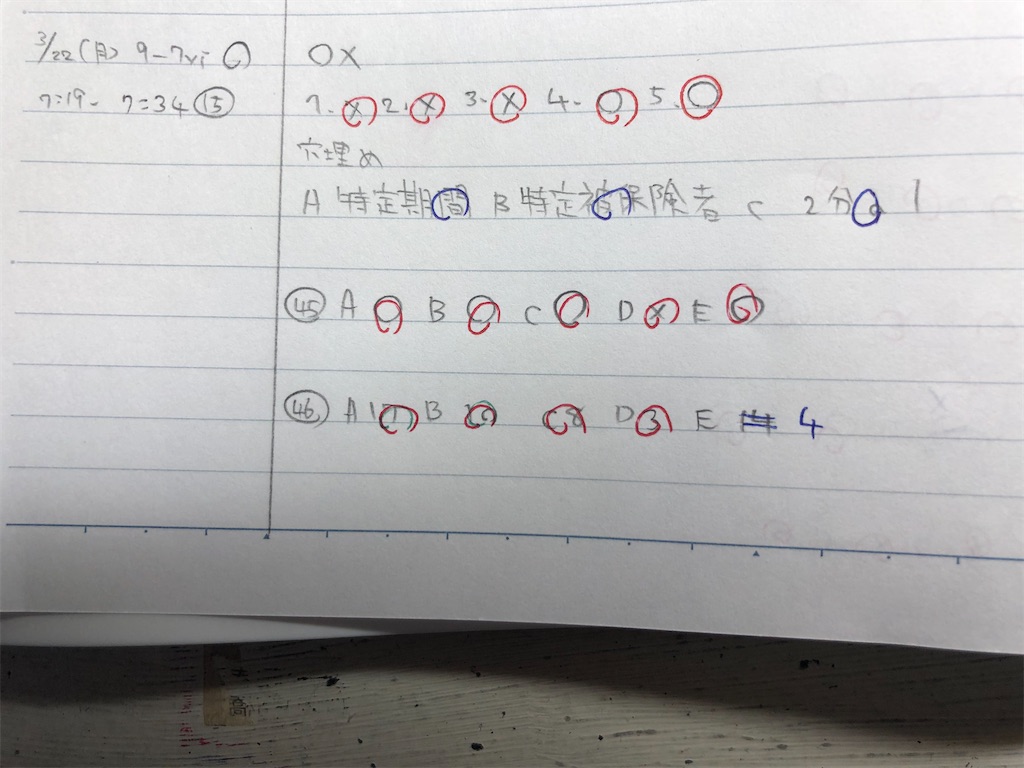 3/22(月) 9-7
7:19- 7:34 ⑮
○×
1. × 2. × 3. × 4. ○ 5. ○
穴埋め
A 特定期間 B 特定被保険者 C 2分の1
㊺ A ○ B ○ C ○ D × E ○
㊻ A 11 B C 8 D 3 E 4